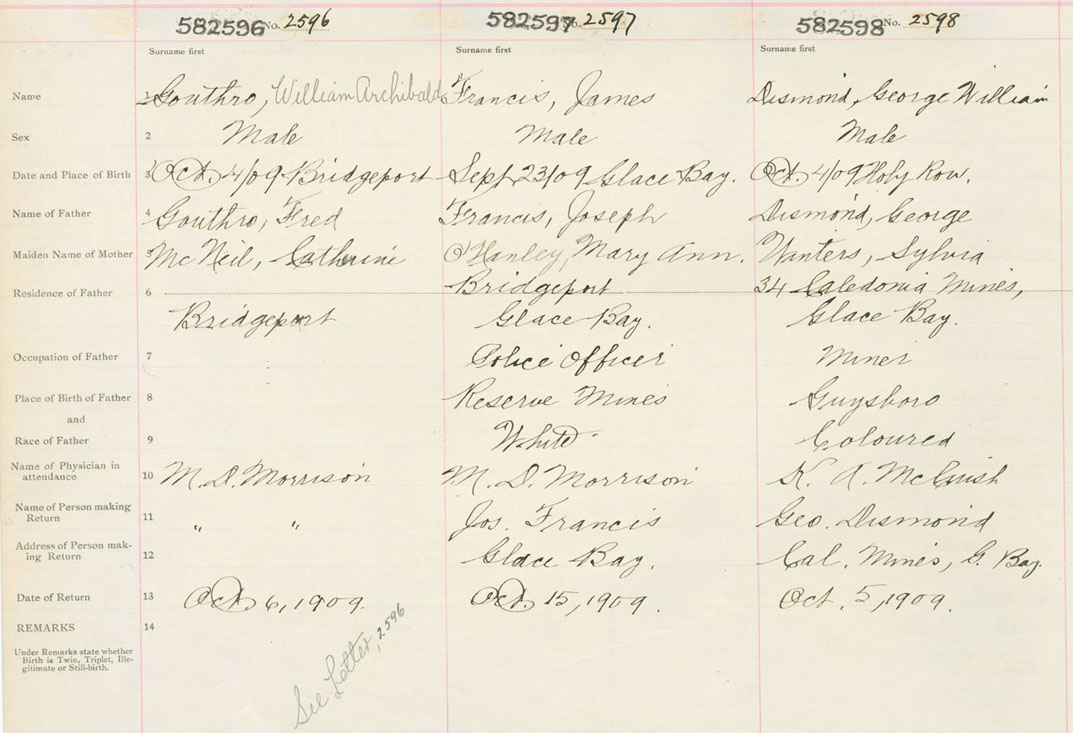 582596 No. 2596 582597 No. 2597 582598 No. 2598
Surname first Surname first Surname first
Name 1 Gouthro, William Archibald Francis, James Desmond, George William
Sex 2 Male Male Male
Date and Place of Birth 3 Oct. 4/09 Bridgeport Sept 23/09 Glace Bay. Oct. 4/09 Row.
Name of Father 4 Gouthro, Fred Francis, Joseph Desmond, George
Maiden Name of Mother 5 McNeil, Catherine O'Hanley, Mary Ann. Winters, Sylvia
Residence of Father 6 Bridgeport 34 Caledonia Mines,
Bridgeport Glace Bay. Glace Bay.
Occupation of Father 7 Police Officer Miner
Place of Birth of Father 8 Reserve Mines Guysboro
and
Race of Father 9 White Coloured
Name of Physician in
attendance 10 M. D. Morrison M. D. Morrison K. A. McCuish
Name of Person making
Return 11 " " Jos. Francis Geo. Desmond
Address of Person mak-
ing Return 12 Glace Bay. Cal. Mines, G. Bay.
Date of Return 13 Oct. 6, 1909. Oct. 15, 1909. Oct. 5, 1909.
REMARKS 14
Under Remarks state whether
Birth is Twin, Triplet, Ille-
gitimate or Still-birth.
See Letter, 2596